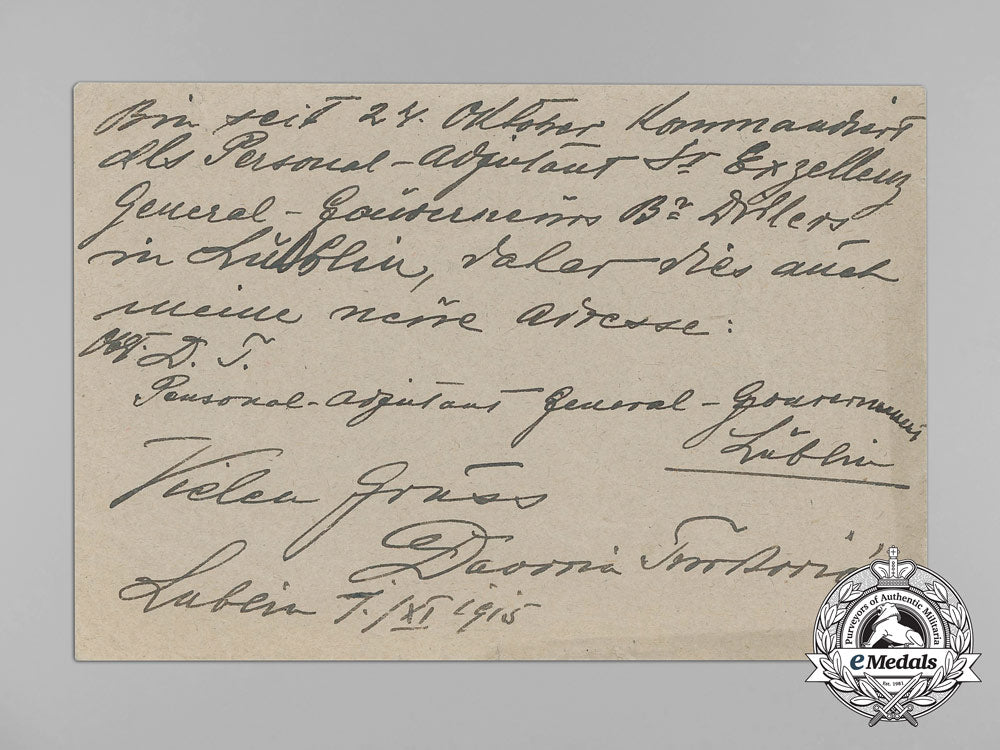 Bin seit 24. Oktober Kommandiert
als Personal-Adjutant Sr Exzellenz
General-Gouverneurs Br Dillers
in Lublin, daher dies auch
meine neue Adresse:
Obt. D. T.
Personal-Adjutant General-Gouvernement
Lublin
Vielen Gruss
Davorin
Lublin 7./XI 1915
Purveyors of Authentic Militaria
eMedals
Est. 1981